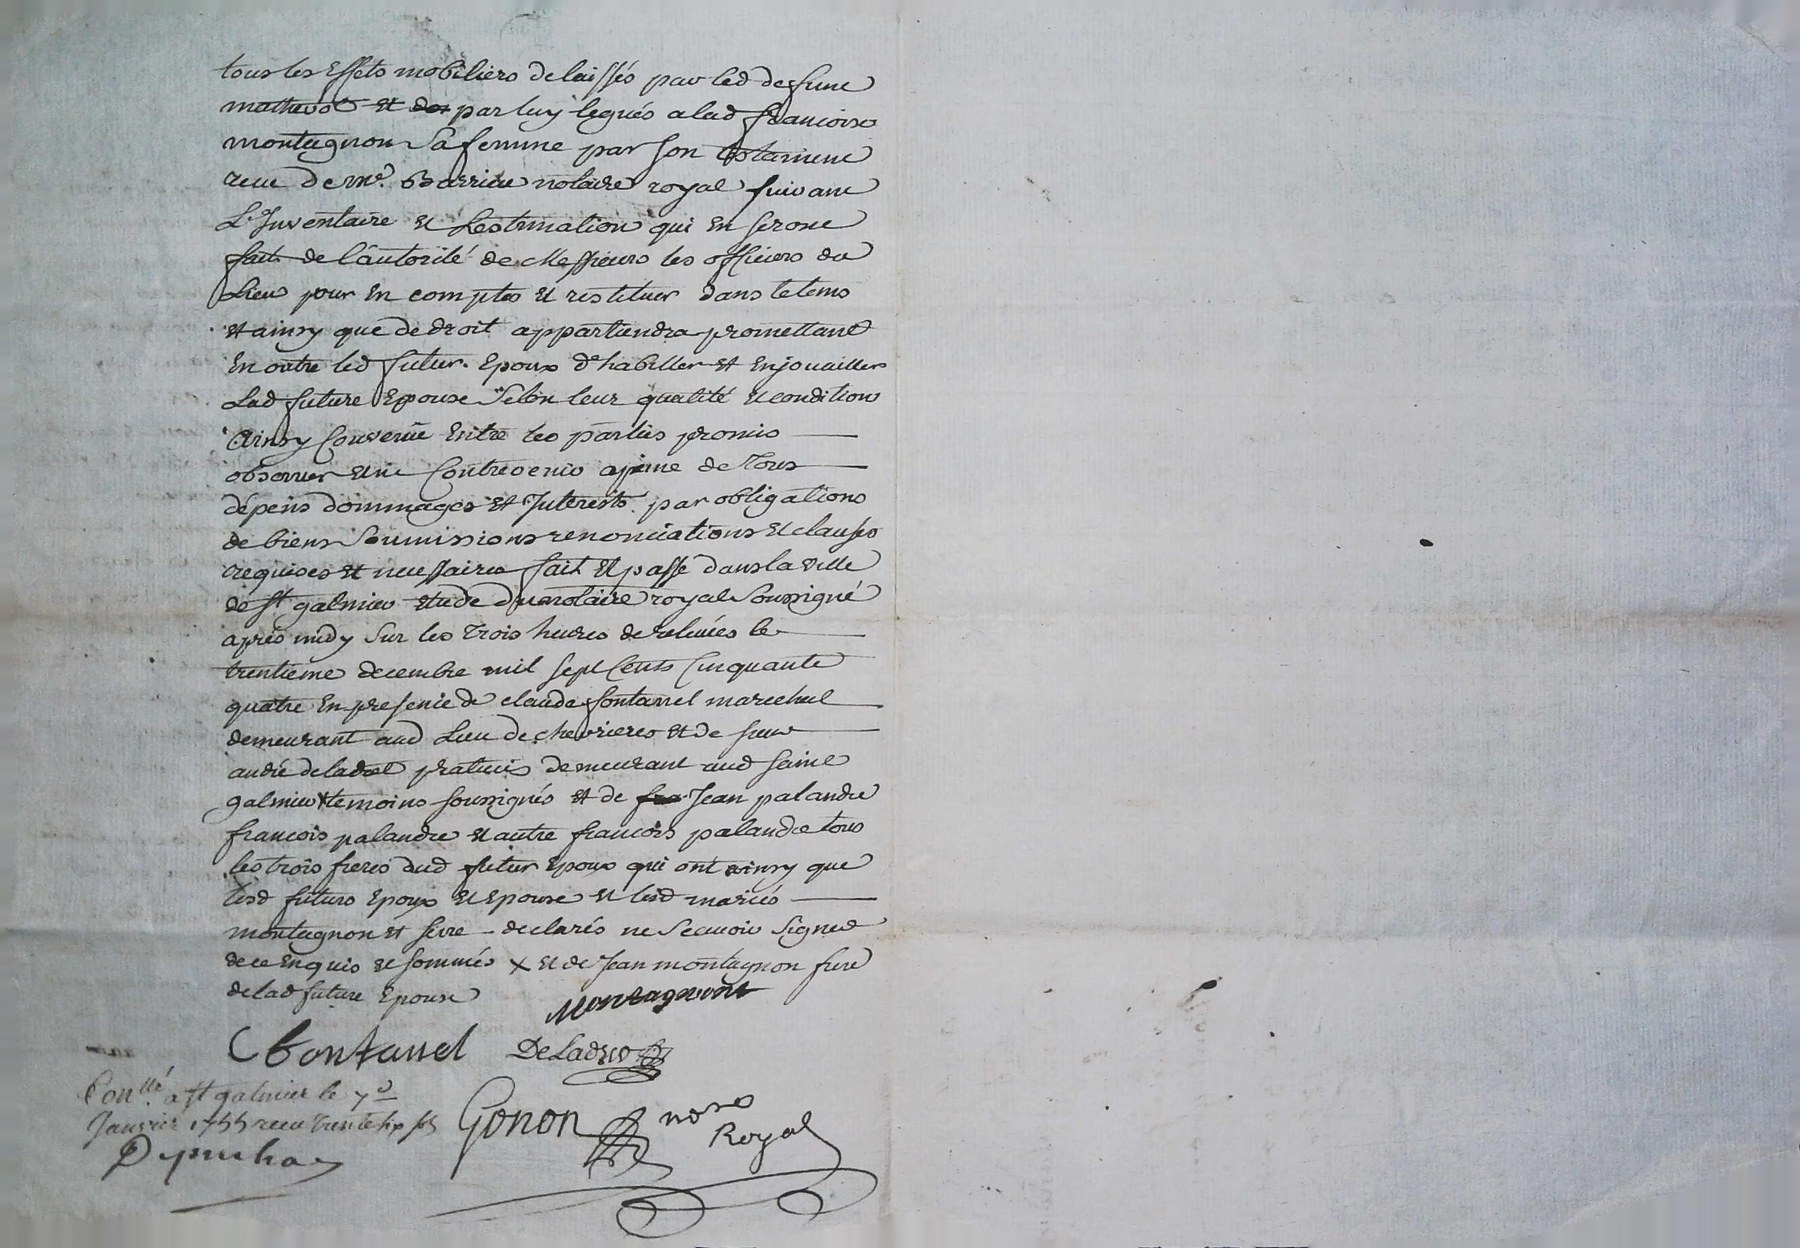 tous les Effets mobiliers delaissés par led defunt
mathevot et des par luy legués a lad francoise
montagnon Sa femme par son testament
receu de me. Barrieu notaire royal suivant
L'Inventaire et Lestimation qui En seront
fait de l'autorité de Messieurs les officiers du
Lieu pour En compter et restituer dans le tems
et ainsy que de droit appartiendra promettant
En outre led futur Epoux d'habiller et Enjouailler
Lad future Epouse Selon leur qualité et condition
Ainsy Convenu Entre les parties promis
observer et ni Contrevenir a peine de Tous
dépens dommages et Interests par obligations
de biens Soumissions renonciations et clauses
requises et necessaires fait et passé dans la ville
de st galmier etude du notaire royal Soussigné
aprés midy sur les Trois heures de relevées le
trentieme decembre mil sept Cents Cinquante
quatre En presence de claude fontanel marechal
demeurant aud Lieu de chevrieres et de sieur
andré deladret praticien demeurant aud saint
galmier x temoins soussignés et de fra Jean palandre
francois palandre et autre francois palandre tous
les trois freres dud futur Epoux qui ont ainsy que
lesd futurs Epoux et Epouse et lesd mariés
montagnon et serre declarés ne Scavoir Signer
de ce Enquis et sommés x et de Jean montagnon frere
de lad future Epouse
Montagnont
C fontanel DeLadret
Conllé a st galmier le 7e
Janvier 1755 receu trente six ss
Gonon nore
Royal